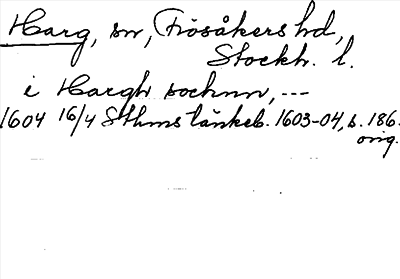 Harg, sn, Frösåkers hd,
Stockh. l.
i Hargh sochnn, ---
1604 16/4 Sthms tänkeb. 1603-04, s. 186.
orig.